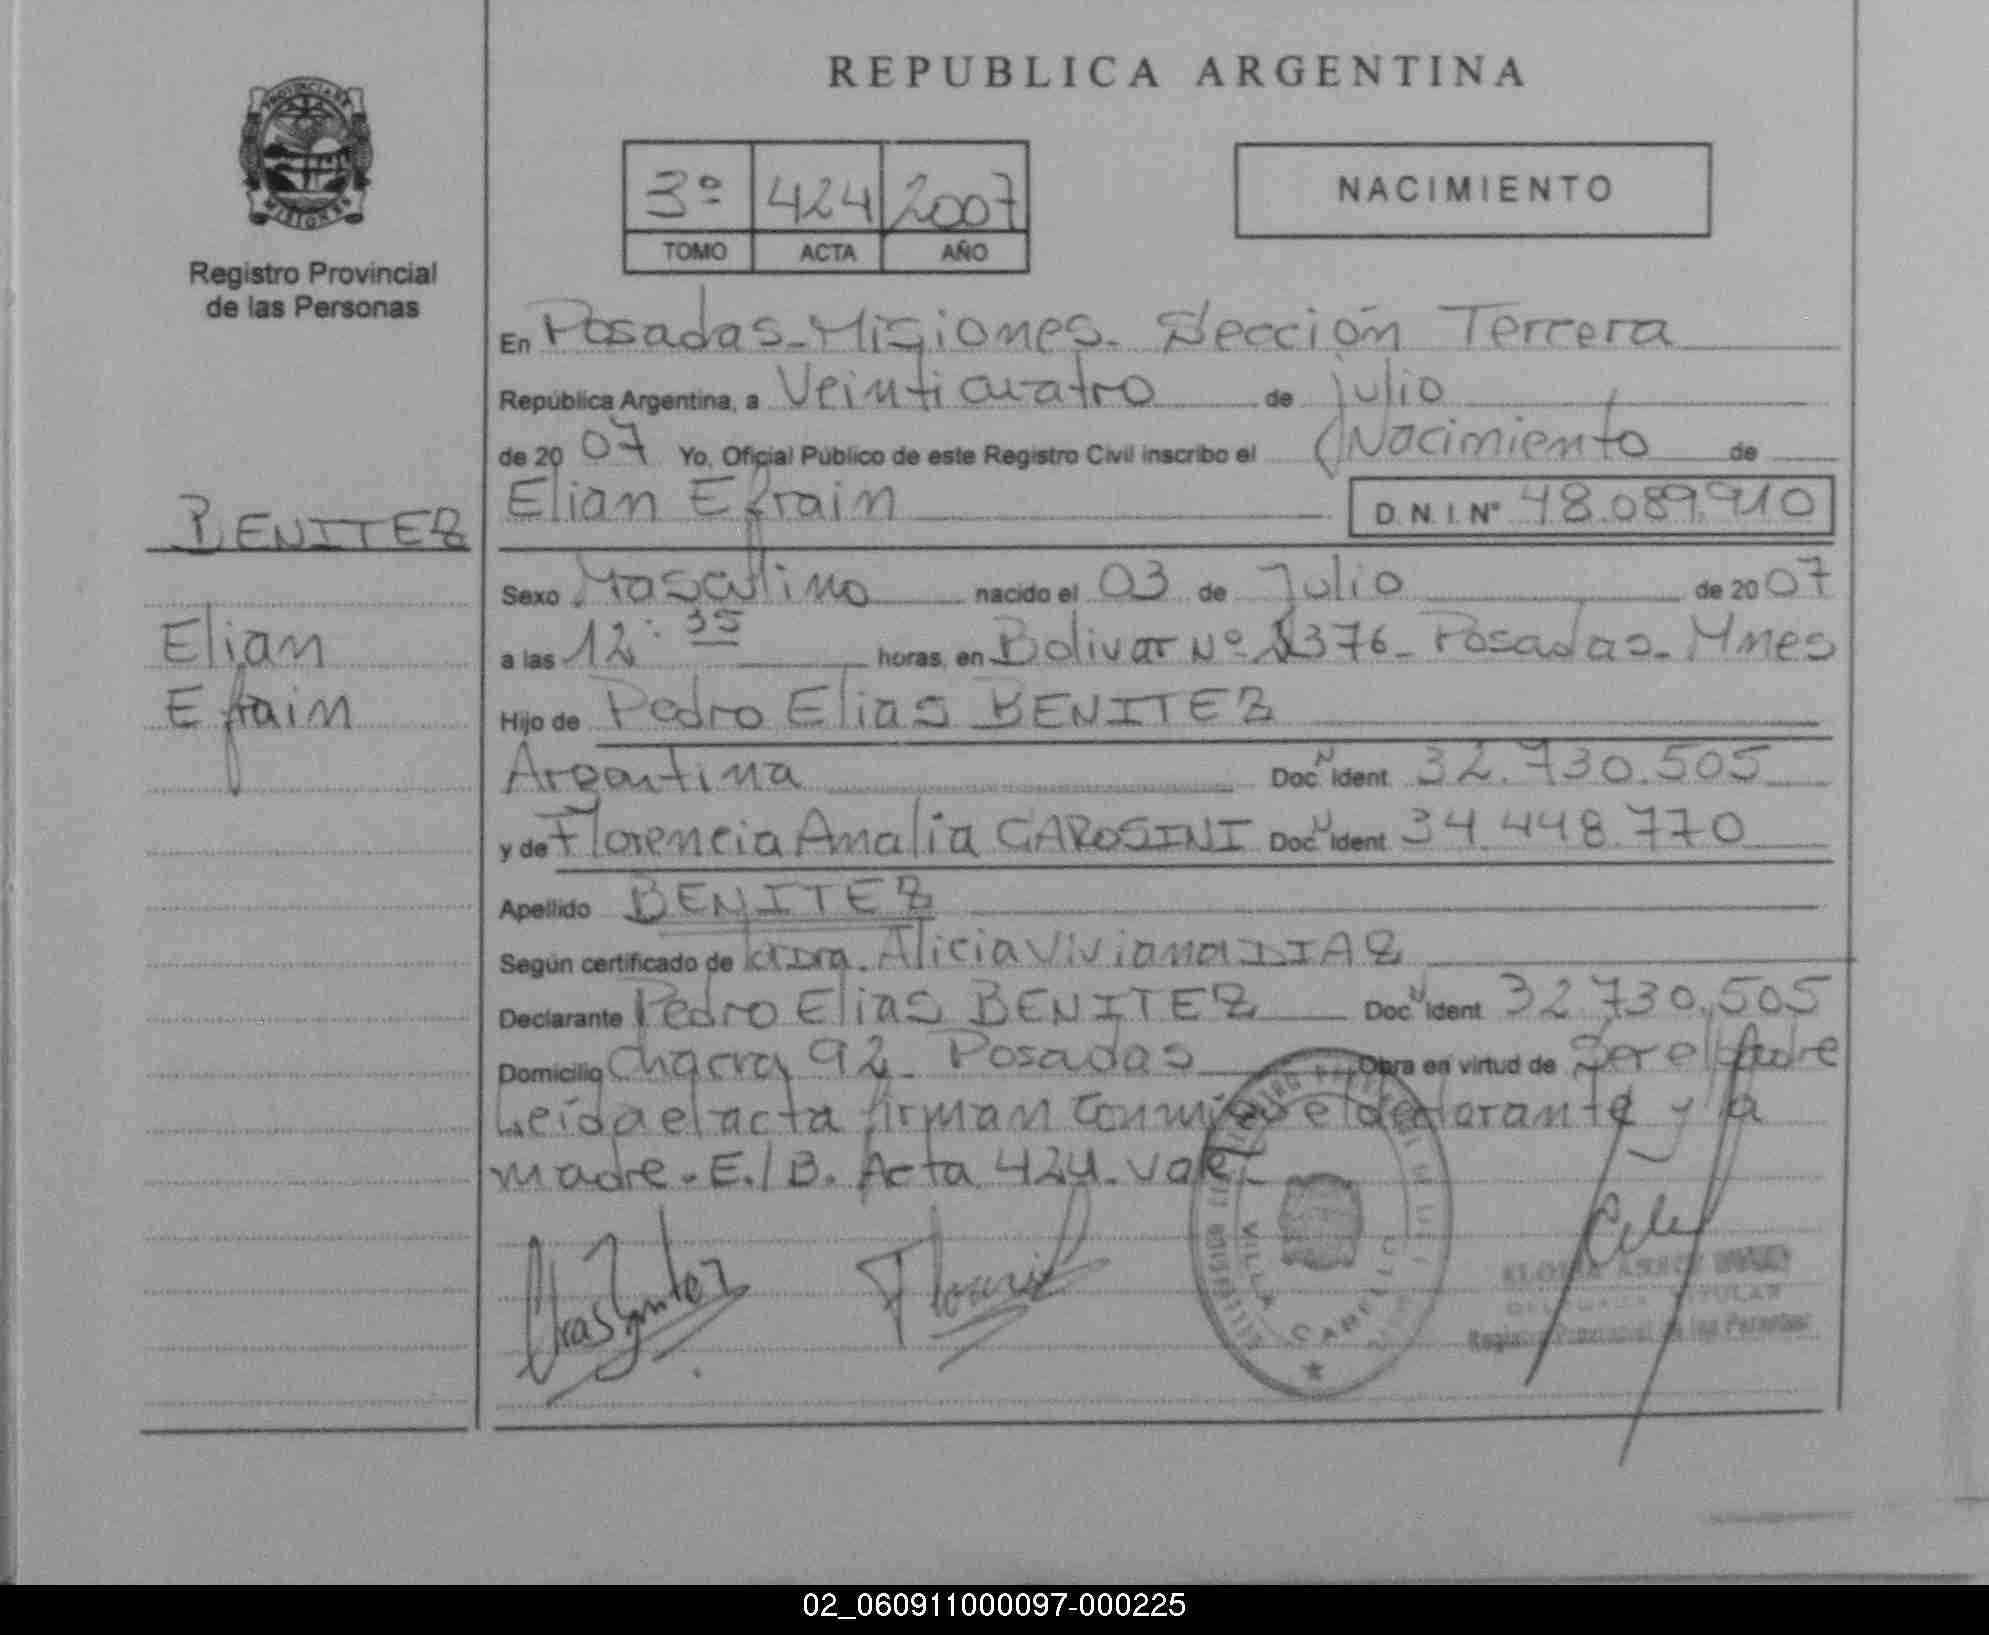 REPUBLICA ARGENTINA
PROVINCIA DE
MISIONES
Registro Provincial
de las Personas
3º 424 2007
TOMO ACTA AÑO
NACIMIENTO
En Posadas-Misiones. Sección Tercera
República Argentina, a Veinticuatro de julio
de 2007 Yo, Oficial Público de este Registro Civil inscribo el Nacimiento de
BENITEZ
Elian Efrain D.N.I. Nº 48.089.910
Sexo Masculino nacido el 03 de Julio de 2007
Elian
a las 12:35 horas, en Bolivar Nº 2376- Posadas- Mnes
Efrain
Hijo de Pedro Elias BENITEZ
Argentina Doc. N Ident. 32.730.505
y de Florencia Amalia CAROSINI Doc. N Ident. 34.448.770
Apellido BENITEZ
Según certificado de la Dra. Alicia Viviana DIAZ
Declarante Pedro Elias BENITEZ Doc. N Ident. 32.730.505
Domicilio Chacra 92- Posadas Obra en virtud de Ser el Padre
Leída el acta firman conmigo el declarante y la
madre-E./B. Acta 424-vale-
VILLA CABELLO
TITULAR
Registro Provincial de las Personas
02_060911000097-000225